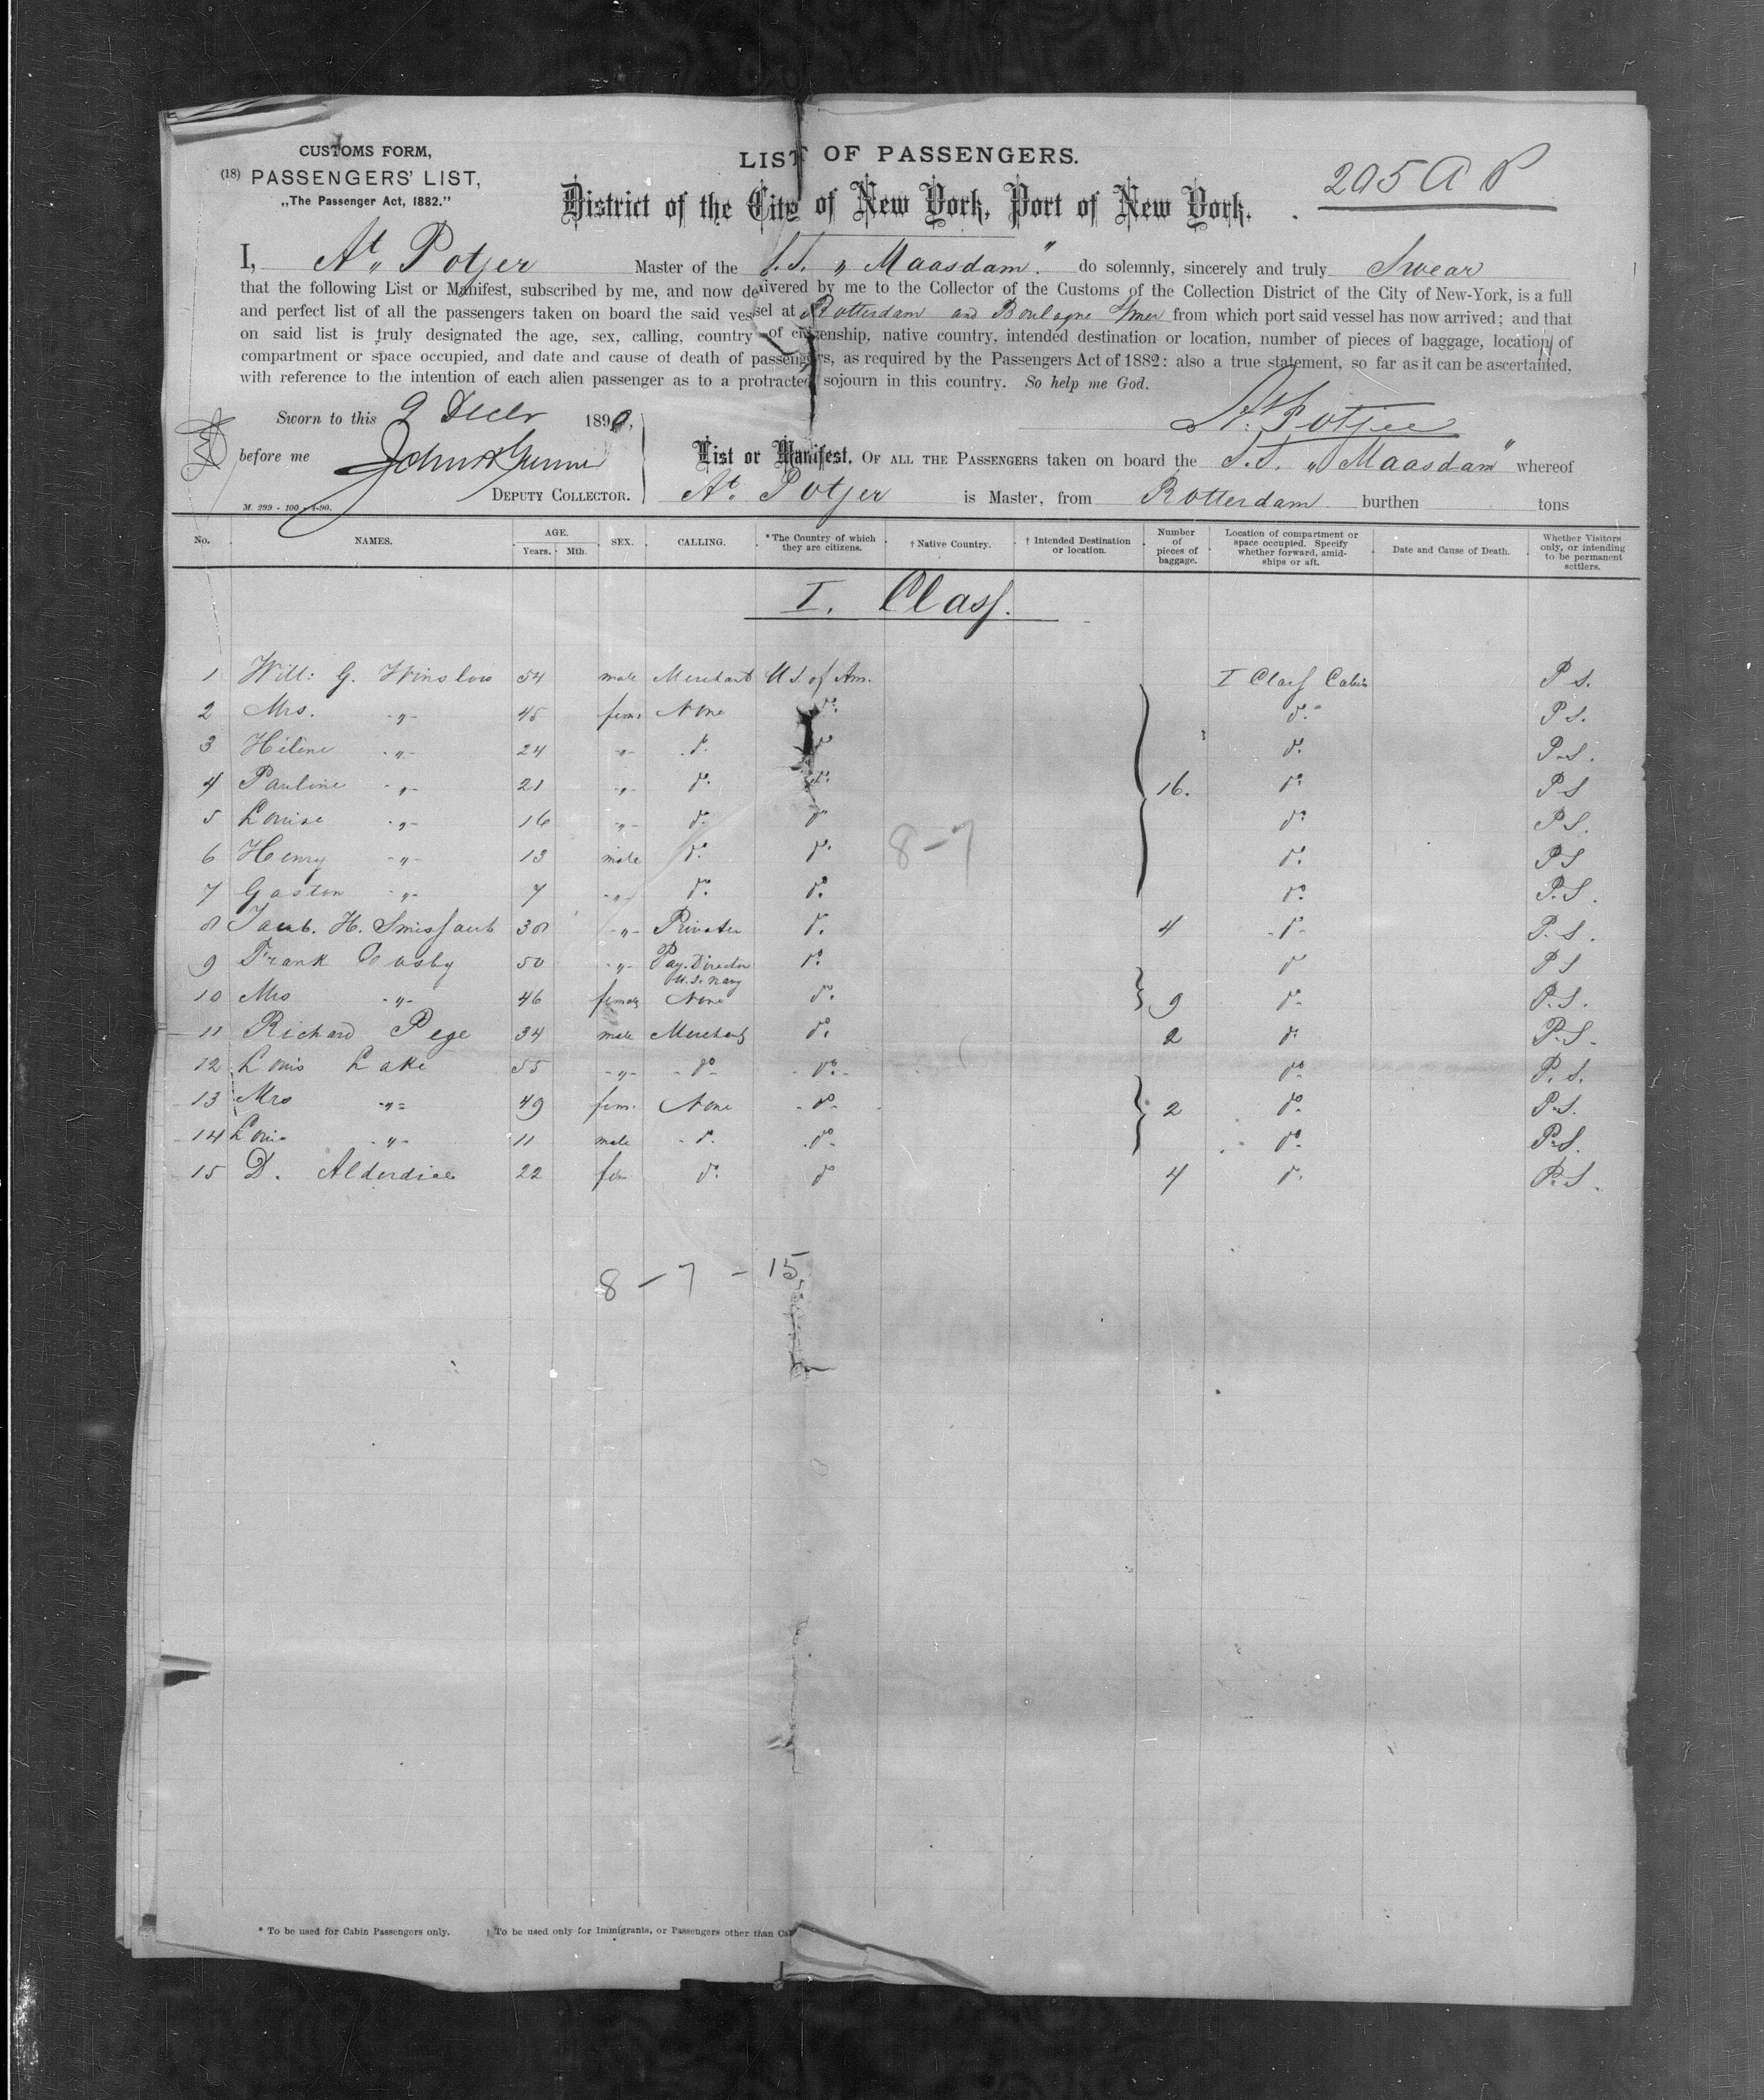 CUSTOMS FORM,
(18) PASSENGERS' LIST,
„The Passenger Act, 1882."
LIST OF PASSENGERS.
District of the City of New York, Port of New York.
205 A P
I, At. Potjer Master of the S.S. „Maasdam" do solemnly, sincerely and truly Swear
that the following List or Manifest, subscribed by me, and now delivered by me to the Collector of the Customs of the Collection District of the City of New-York, is a full
and perfect list of all the passengers taken on board the said vessel at Rotterdam and Boulogne s/mer from which port said vessel has now arrived; and that
on said list is truly designated the age, sex, calling, country of citizenship, native country, intended destination or location, number of pieces of baggage, location of
compartment or space occupied, and date and cause of death of passengers, as required by the Passengers Act of 1882: also a true statement, so far as it can be ascertained,
with reference to the intention of each alien passenger as to a protracted sojourn in this country. So help me God.
Sworn to this 9 Decbr 1890,
At. Potjer
before me
DEPUTY COLLECTOR.
M. 299 - 100 - 4-90.
List or Manifest, OF ALL THE PASSENGERS taken on board the S.S. „Maasdam" whereof
At. Potjer is Master, from Rotterdam burthen tons
No. NAMES. AGE. Years. Mth. SEX. CALLING. * The Country of which they are citizens. † Native Country. † Intended Destination or location. Number of pieces of baggage. Location of compartment or space occupied. Specify whether forward, amid-ships or aft. Date and Cause of Death. Whether Visitors only, or intending to be permanent settlers.
I. Class.
1 Will: G. Winslow 54 male Merchant U.S. of Am. I Class Cabin P S.
2 Mrs. -„- 45 fem. None do. do. P S.
3 Hélène -„- 24 -„- do. do. do. P.S.
4 Pauline -„- 21 -„- do. do. 16. do. P S
5 Louise -„- 16 -„- do. do. do. P S.
6 Henry -„- 13 male do. do. do. P S
8-7
7 Gaston -„- 7 -„- do. do. do. P.S.
8 H. 38 -„- Privater do. 4 do. P.S.
9 Frank Cosby 50 -„- Pay. Director U.S. Navy do. do P S
10 Mrs -„- 46 female None do. 9 do. P.S.
11 Richard Pege 34 male Merchant do. 2 do. P.S.
12 Louis Lake 55 -„- do do. do. P.S.
13 Mrs -„- 49 fem. None do. 2 do. P.S.
14 Louis -„- 11 male do. do. do. P.S.
15 D. Alderdice 22 fem do. do 4 do. P.S.
8 - 7 - 15
* To be used for Cabin Passengers only. † To be used only for Immigrants, or Passengers other than Cab